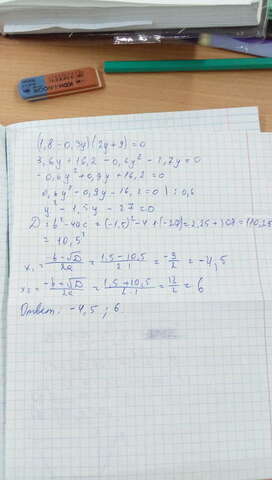 (1,8-0,3y)(2y+9)=0
3,6y+16,2-0,6y²-2,7y=0
-0,6y²+0,9y+16,2=0
0,6y²-0,9y-16,2=0 | : 0,6
y²-1,5y-27=0
D=b²-4ac=(-1,5)²-4·1·(-27)=2,25+108=110,25
=10,5²
x₁=(-b-√D)/2a=(1,5-10,5)/2·1=-9/2=-4,5
x₂=(-b+√D)/2a=(1,5+10,5)/2·1=12/2=6
Ответ: -4,5 ; 6.